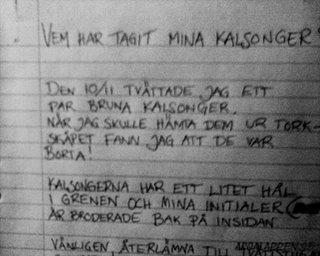 VEM HAR TAGIT MINA KALSONGER
DEN 10/11 TVÄTTADE JAG ETT
PAR BRUNA KALSONGER.
NÄR JAG SKULLE HÄMTA DEM UR TORK-
SKÅPET FANN JAG ATT DE VAR
BORTA!
KALSONGERNA HAR ETT LITET HÅL
I GRENEN OCH MINA INITIALER
ÄR BRODERADE BAK PÅ INSIDAN
VÄNLIGEN, ÅTERLÄMNA TILL